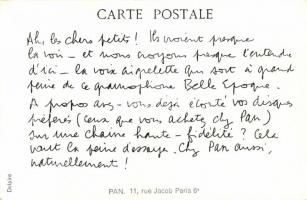 CARTE POSTALE
Ah, les chers petits! Ils voient presque
la voix - et nous croyons presque l'entendre
d'ici - la voix aigrelette qui sort à grand
peine de ce gramophone Belle Epoque.
A propos avez-vous déjà écouté vos disques
préférés (ceux que vous achetez chez Pan)
sur une chaîne haute-fidélité? Cela
vaut la peine d'essayer. Chez Pan aussi,
naturellement!
Delaire
PAN. 11, rue Jacob Paris 6e